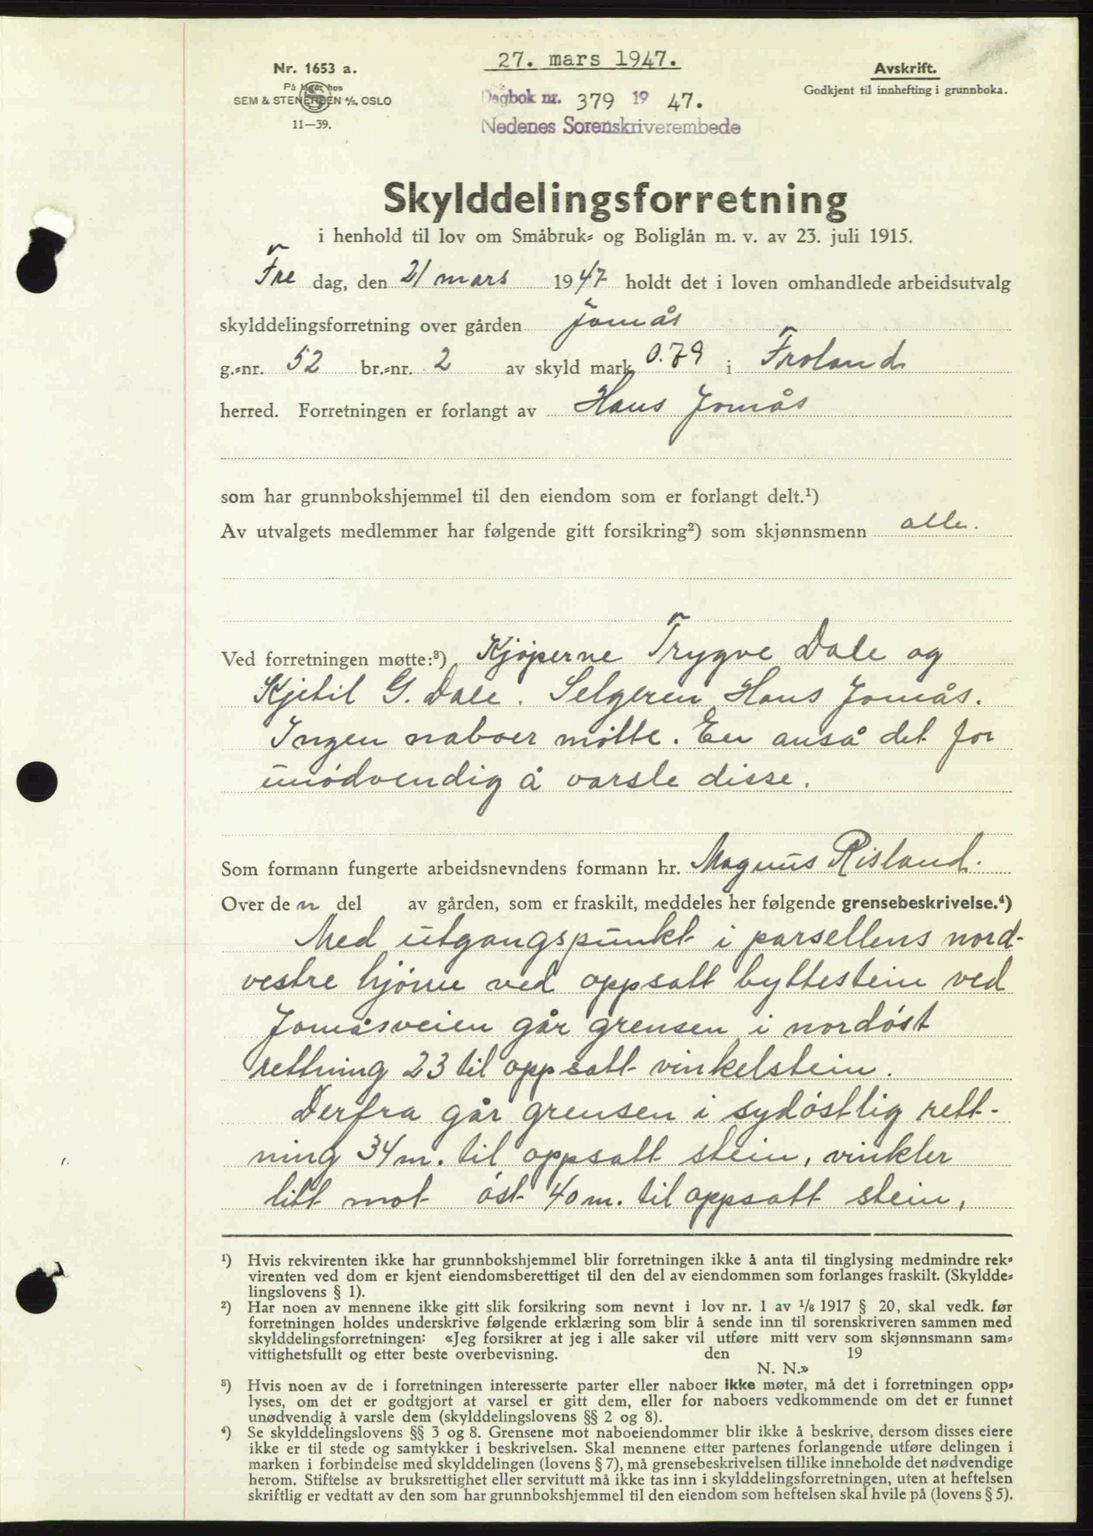 Nr. 1653 a.
På lager hos
SEM & STENERSEN A/S, OSLO
11—39.
27. mars 1947.
Dagbok nr. 379 1947.
Nedenes Sorenskriverembede
Avskrift.
Godkjent til innhefting i grunnboka.
Skylddelingsforretning
i henhold til lov om Småbruk- og Boliglån m. v. av 23. juli 1915.
Fre dag, den 21 mars 1947 holdt det i loven omhandlede arbeidsutvalg
skylddelingsforretning over gården Jomås
g.-nr. 52 br.-nr. 2 av skyld mark 0.79 i Froland
herred. Forretningen er forlangt av Hans Jomås
som har grunnbokshjemmel til den eiendom som er forlangt delt.¹)
Av utvalgets medlemmer har følgende gitt forsikring²) som skjønnsmenn alle.
Ved forretningen møtte:³) Kjøperne Trygve Dale og
Kjetil G. Dale. Selgeren Hans Jomås.
Ingen naboer møtte. En anså det for
unødvendig å varsle disse.
Som formann fungerte arbeidsnevndens formann hr. Magnus Risland.
Over den del av gården, som er fraskilt, meddeles her følgende grensebeskrivelse.⁴)
Med utgangspunkt i parsellens nord-
vestre hjørne ved oppsatt byttestein ved
Jomåsveien går grensen i nordøst
rettning 23 til oppsatt vinkelstein.
Derfra går grensen i sydøstlig rett-
ning 34 m. til oppsatt stein, vinkler
litt mot øst 40 m. til oppsatt stein,
¹) Hvis rekvirenten ikke har grunnbokshjemmel blir forretningen ikke å anta til tinglysing medmindre rek-
virenten ved dom er kjent eiendomsberettiget til den del av eiendommen som forlanges fraskilt. (Skyldde-
lingslovens § 1).
²) Har noen av mennene ikke gitt slik forsikring som nevnt i lov nr. 1 av 1/6 1917 § 20, skal vedk. før
forretningen holdes underskrive følgende erklæring som blir å sende inn til sorenskriveren sammen med
skylddelingsforretningen: «Jeg forsikrer at jeg i alle saker vil utføre mitt verv som skjønnsmann sam-
vittighetsfullt og etter beste overbevisning. den 19
N. N.»
³) Hvis noen av de i forretningen interesserte parter eller naboer ikke møter, må det i forretningen opp-
lyses, om det er godtgjort at varsel er gitt dem, eller for naboers vedkommende om det er funnet
unødvendig å varsle dem (skylddelingslovens §§ 2 og 8).
⁴) Se skylddelingslovens §§ 3 og 8. Grensene mot naboeiendommer blir ikke å beskrive, dersom disses eiere
ikke er til stede og samtykker i beskrivelsen. Skal mennene etter partenes forlangende utføre delingen i
marken i forbindelse med skylddelingen (lovens § 7), må grensebeskrivelsen tillike inneholde det nødvendige
herom. Stiftelse av bruksrettighet eller servitutt må ikke tas inn i skylddelingsforretningen, uten at heftelsen
skriftlig er vedtatt av den som har grunnbokshjemmel til den eiendom som heftelsen skal hvile på (lovens § 5).